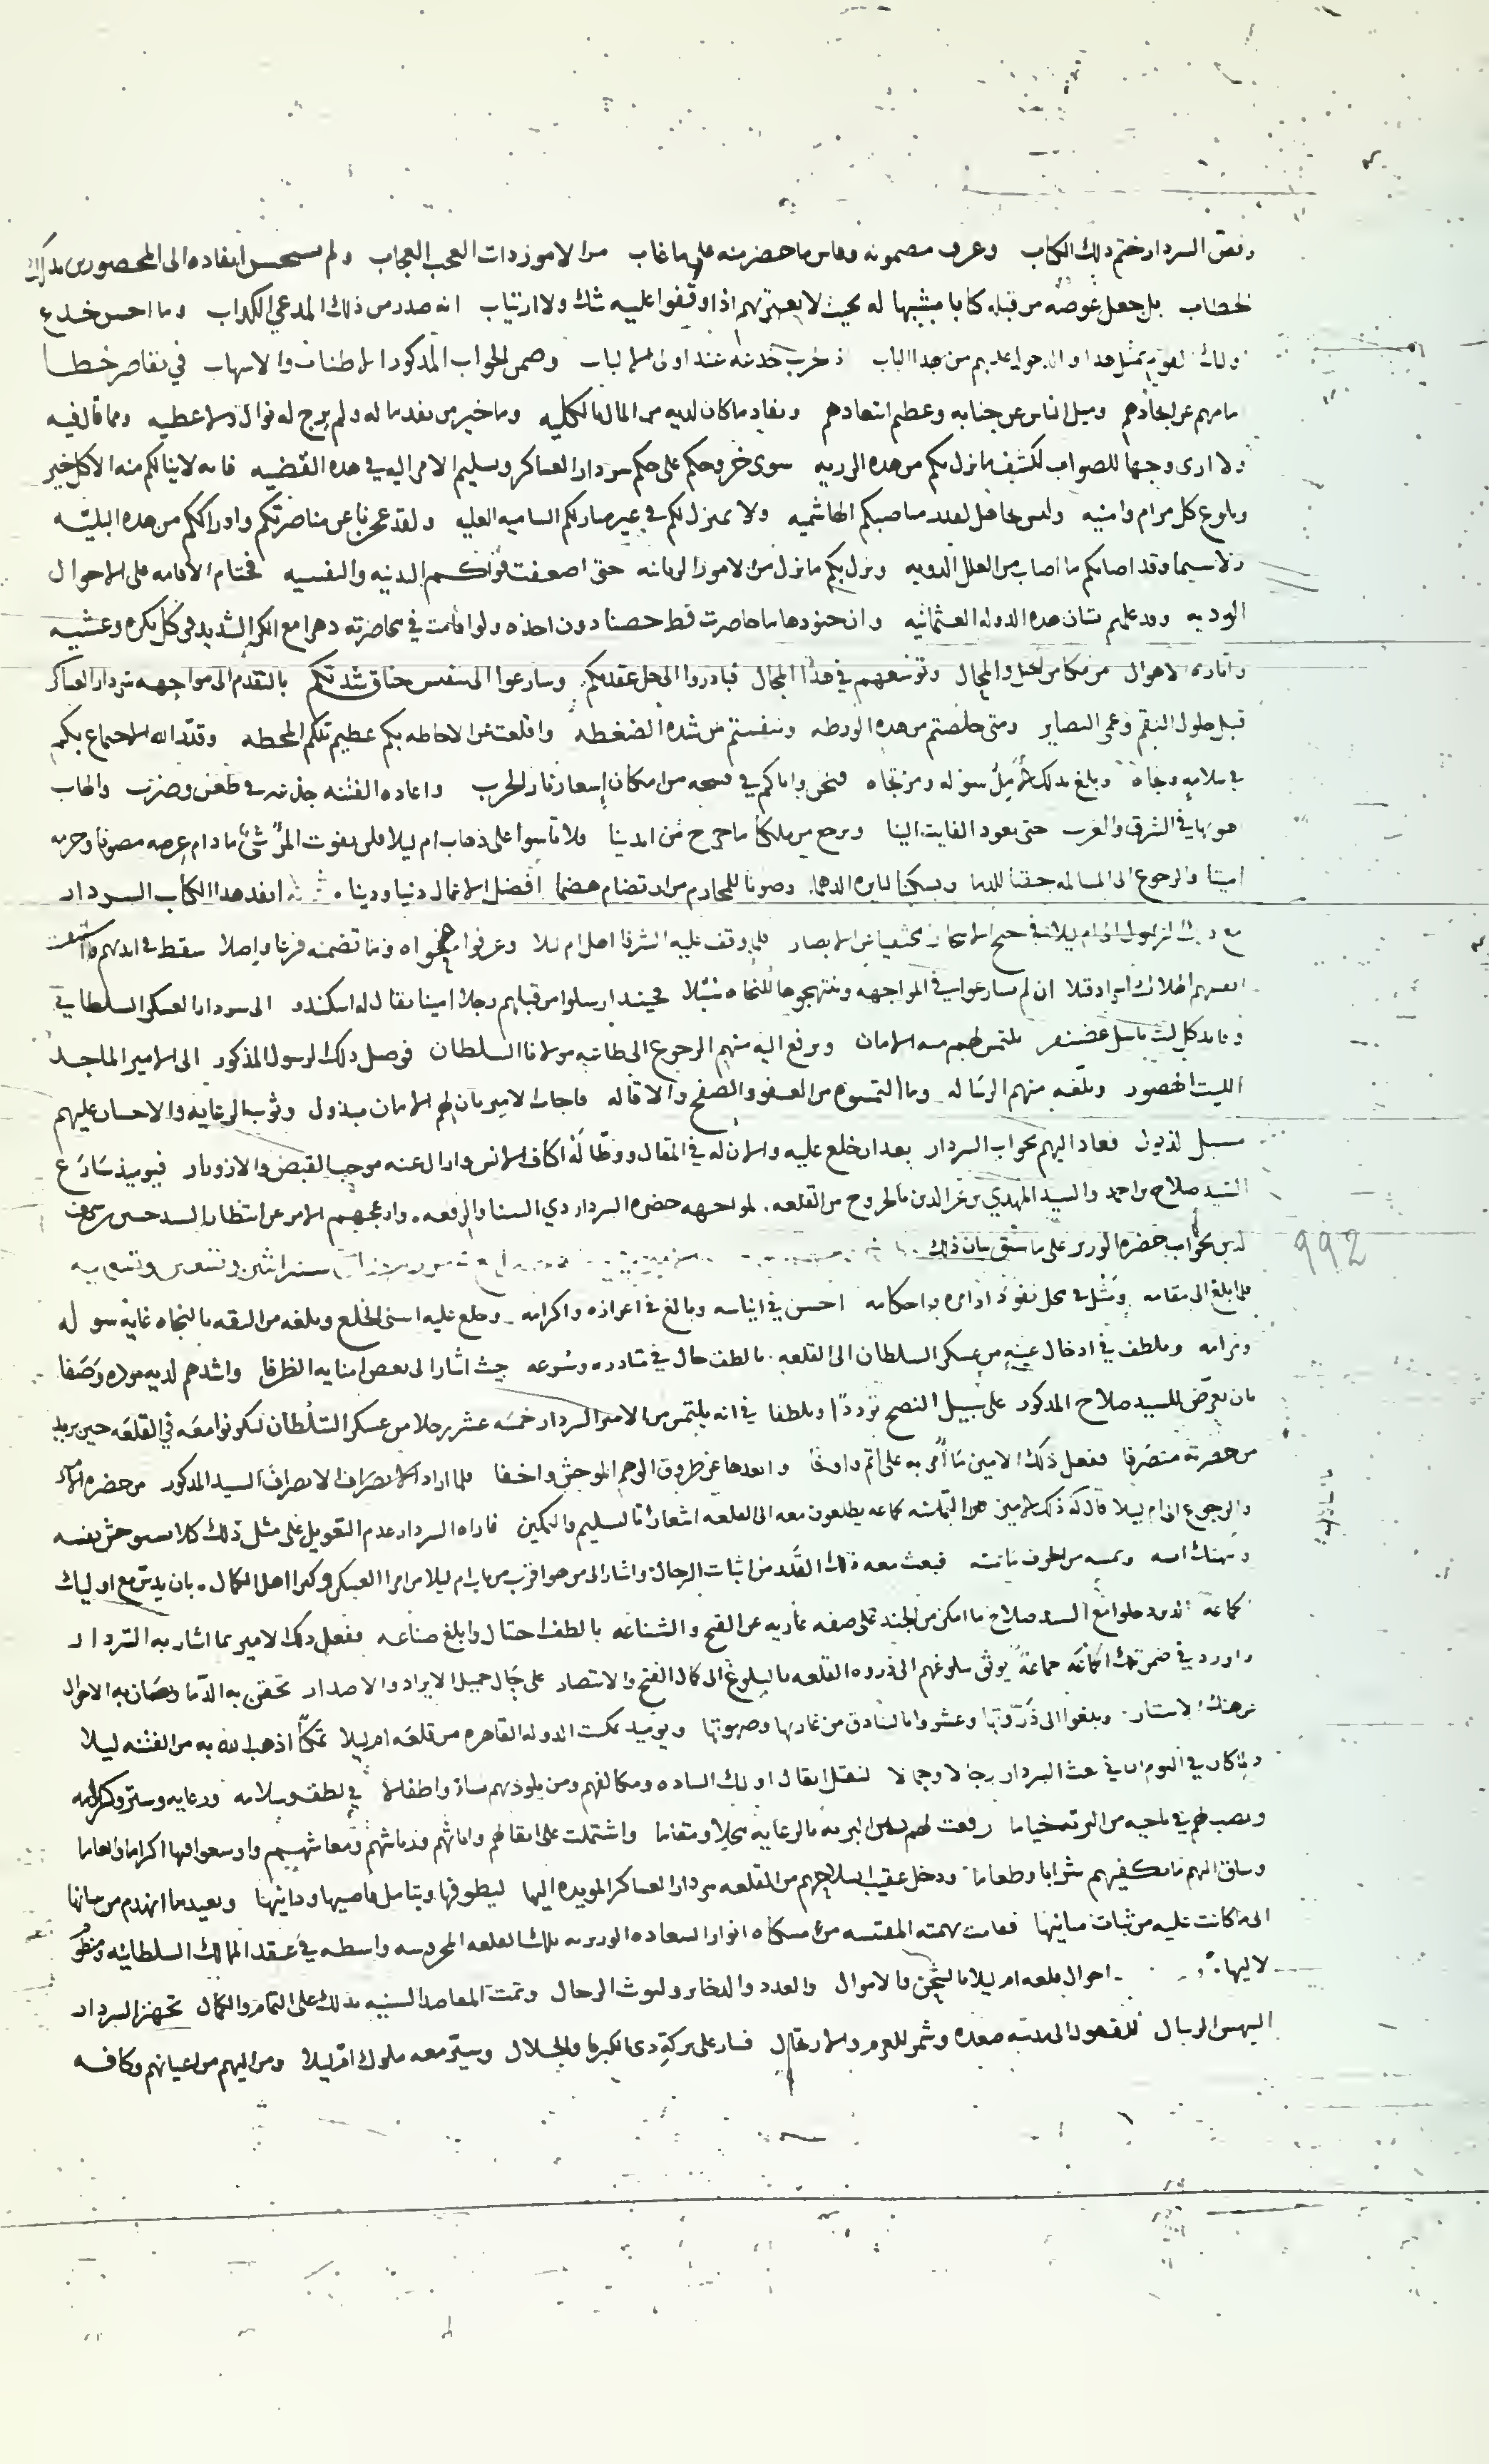 وفض السردار ختم ذلك الكتاب وعرف مضمونه وقاس ما حضر منه على ما غاب من الامور ذات العجب العجاب ولم يستحسن انفاده الى المحصورين بذلك
الخطاب بل جعل عوضه من قبله كتابا مشبها له بحيث لا يعتريهم اذا وقفوا عليه شك ولا ارتياب انه صدر من ذلك المدعي الكداب وما احسن خدع
اولئك القوم بمثل هدا والدخول عليهم من هدا الباب عند اولى الالباب وضمن الجواب المدكور الاطناب والاسهاب في تقاصر خطا
وميل الناس عن جنابه وعظم ابتعادهم ونفاد ما كان لديه من المال بالكليه ولم يرج له نوال ولا عطيه ومما قال فيه
ولا ارى وجها للصواب لكشف ما نزل بكم من هده الرزيه سوى خروجكم على حكم سردار العساكر وتسليم الامر اليه في هده القضيه فانه لا ينالكم منه الا كل خير
وبلوغ كل مرام وامنيه وليس بجاهل لقدر مناصبكم الهاشميه ولا بمنزل لكم في غير منازلكم الساميه العليه ولقد عجزنا عن مناصرتكم وادراككم من هده البليه
ولا سيما وقد اصابكم ما اصاب من العلل الدويه ونزل بكم ما نزل من الامور الربانيه حتى اضعفت قواكم البدنيه والنفسيه فحتام الاقامه على الاحوال
الرديه وقد علمتم شان هده الدوله العثمانيه وان جنودها ما حاصرت قط حصنا دون اخذه ولو اقامت في محاصرته دهرا مع الكر الشديد في كل بكره وعشيه
واثاره الاهوال من مكامن الحيل والمجال وتوسعهم في هذا المجال فبادروا الى حل عقدتكم وسارعوا الى تنفيس خناق شدتكم بالتقدم الى مواجهه سردار العساكر
قبل حلول النقم وعمى البصاير ومتى خلصتم من هده الورطه وتنفستم من شده الضغطه واقلعت عن الاحاطه بكم عظيم تلكم المحطه وقدر الله الاجتماع بكم
في سلامه ونجاه وبلغ بدلك كل مؤمل سوله ومرتجاه فنحن واياكم في فسحه من امكان إسعار نار الحرب واعاده الفتنه جذعه في طعن وضرب والهاب
هوبها في الشرق والغرب حتى يعود الفايت الينا ويرجع من ملكنا ما خرج من ايدينا ولا تأسوا على ذهاب ام ليلا فلن يفوت المرء شئ ما دام عرضه مصونا وحرمه
امينا والرجوع الى المسالمه حقنا للدما وتسكينا لثايره الدهما وصونا للمحارم من ان تضام هضما افضل الاعمال دنيا ودينا انفد هدا الكتاب السردار
مع ذلك الرسول الى ام ليلا في جنح الاسحار مختفيا عن الابصار فلما وقف عليه الشرفا اهل ام ليلا وعرفوا فحواه وما تضمنه فرعا واصلا سقط في ايديهم
انفسهم الهلاك اسرا وقتلا ان لم يسارعوا في المواجهه وينتهجوها للنجاه سبلا فحينئذ ارسلوا من قبلهم رجلا امينا يقال له اسكندر الى سردار العسكر السلطاني
وقايد كل ليث باسل غضنفر يلتمس لهم منه الامان ويرفع اليه منهم الرجوع الى طاعه مولانا السلطان فوصل دلك الرسول المذكور الى الامير الماجد
الليث الهصور وبلغه منهم الرساله وما التمسوه من العفو والصفح والاقاله فاجاب الامير بان لهم الامان مبذول وثوب الرعايه والاحسان عليهم
مسبل الذيول فعاد اليهم بجواب السردار بعد ان خلع عليه والان له في المقال ووطا له اكناف الانس وازال عنه موجب القبض والازورار فيوميذ سارع
السيد صلاح بن احمد والسيد المهدي بن عز الدين بالخروج من القلعه لمواجهه حضره السردار دي السنا والرفعه واعجلهم الامر عن انتظار السيد حسن بن شرف
الدين بجواب حضره الوزير على ما سبق بيان ذلك سنه اثنين وتسعين وتسعميه
فلما بلغ الى مقامه ومثل في محل نفوذ اوامره واحكامه احسن في ايناسه وبالغ في اعزازه واكرامه وخلع عليه اسنى الخلع وبلغه من الثقه بالنجاه غايه سوله
ومرامه وتلطف في ادخال عينه من عسكر السلطان الى القلعه بالطف حال في مبادره وسرعه حيث اشار الى بعض امنايه الظرفا واشدهم لديه موده وصفا
بان يعرض للسيد صلاح المدكور على سبيل النصح توددا وتلطفا في انه يلتمس من الامير السردار خمسه عشر رجلا من عسكر السلطان ليكونوا معه في القلعه حين يريد
من حضرته منصرفا ففعل ذلك الامين ما أمر به على اتم وابعدها عن طروق الوهم الموحش واخفا فلما اراد الانصراف السيد المدكور من حضره
والرجوع الى ام ليلا قال له ذلك الامين كماعه يطلعون معه الى القلعه اشعارا بالتسليم والتمكين فاراه السردار عدم التعويل على مثل ذلك كلا يستوحش نفسه
فبعث معه ذلك القدر من اثبات الرجال واشار الى من هو اقرب من باب ام ليلا من امرا العسكر وكبرا اهل الكمال بان يدس مع اوليك
الجماعه الدين دخلوا مع السيد صلاح ما امكن من الجند على صفه عاريه عن القبح والشناعه بالطف احتال وابلغ صناعه ففعل دلك الامير بما اشار به السردار
واورد في ضمن تلك الجماعه جماعة يوثق ببلوغهم الى ذروه القلعه بالبلوغ الى كمال الفتح والانتصار على حال جميل الايراد والاصدار تحقن به الدما وتصان به الاحوال
عن هتك الاستار وبلغوا الى ذروتها وعشروا بالبنادق من غاربها وصهوتها ويوميذ تمكنت الدوله القاهره من قلعه ام ليلا تمكنا أذهب الله به من الفتنه ليلا
وفي اليوم الثاني بعث السردار رجالا وجمالا لنقل اثقال اوليك الساده ومكالفهم ومن يلوذ بهم نساء واطفالا في لطف وسلامه ورعايه وستر وكرامه
ونصب لهم في ناحيه من البريه خياما رفعت لهم بين البريه بالرعايه محلا ومقاما واشتملت على اثقالهم واثاثهم وقماشهم ومعاشهم واوسعوا فيها اكراما وانعاما
وساق اليهم ما يكفيهم شرابا وطعاما ودخل عقيب انسلاخهم من القلعه سردار العساكر المويده اليها ليطوف بها ويتامل قاصيها ودانيها ويعيد ما انهدم من مبانيها
الى ما كانت عليه من ثبات مبانيها فعادت بهمته المقتبسه من مشكاه انوار السعاده الوزيريه تلك القلعه المحروسه واسطه في عقد الممالك السلطانيه ومنظوم
لاليها احوال قلعه ام ليلا بالشحن بالاموال والعدد والدخاير وليوث الرجال وتمت المقاصد السنيه بدلك على التمام والكمال تجهز السردار
البهس الرىبال للقفول الى مدينه صعده وشمر للعزم والارتحال فسار على بركة دى الكبريا والجلال وسير معه ملوك ام ليلا ومن اليهم من اعيانهم وكافه
992